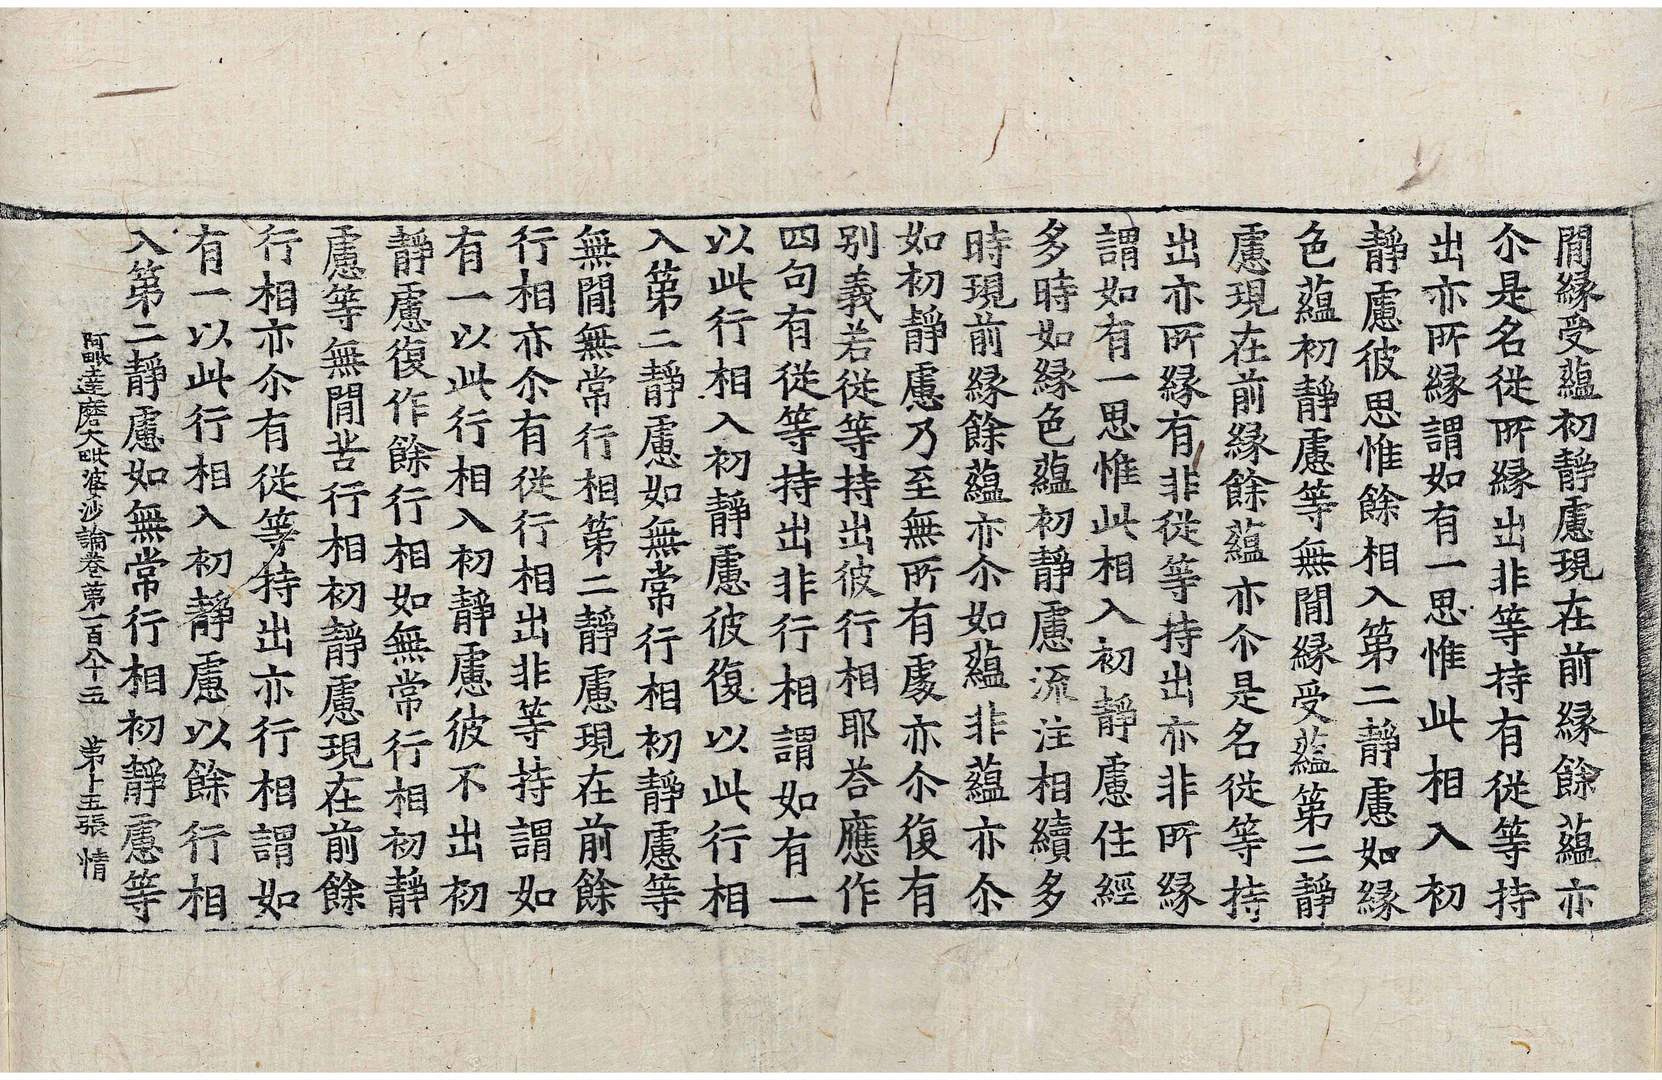 閒縁受蘊初靜慮現在前縁餘蘊亦
尒是名從所縁出非等持有從等持
出亦所縁謂如有一思惟此相入初
靜慮彼思惟餘相入第二靜慮如縁
色蘊初靜慮等無閒縁受蘊第二靜
慮現在前縁餘蘊亦尒是名從等持
出亦所縁有非從等持出亦非所縁
謂如有一思惟此相入初靜慮住經
多時如縁色蘊初靜慮流注相續多
時現前縁餘蘊亦尒如蘊非蘊亦尒
如初靜慮乃至無所有處亦尒復有
別義若從等持出彼行相耶荅應作
四句有從等持出非行相謂如有一
以此行相入初靜慮彼復以此行相
入第二靜慮如無常行相初靜慮等
無閒無常行相第二靜慮現在前餘
行相亦尒有從行相出非等持謂如
有一以此行相入初靜慮彼不出初
靜慮復作餘行相如無常行相初靜
慮等無閒苦行相初靜慮現在前餘
行相亦尒有從等持出亦行相謂如
有一以此行相入初靜慮以餘行相
入第二靜慮如無常行相初靜慮等
阿毗達磨大毗婆沙論卷第一百八十五 第十五張 情